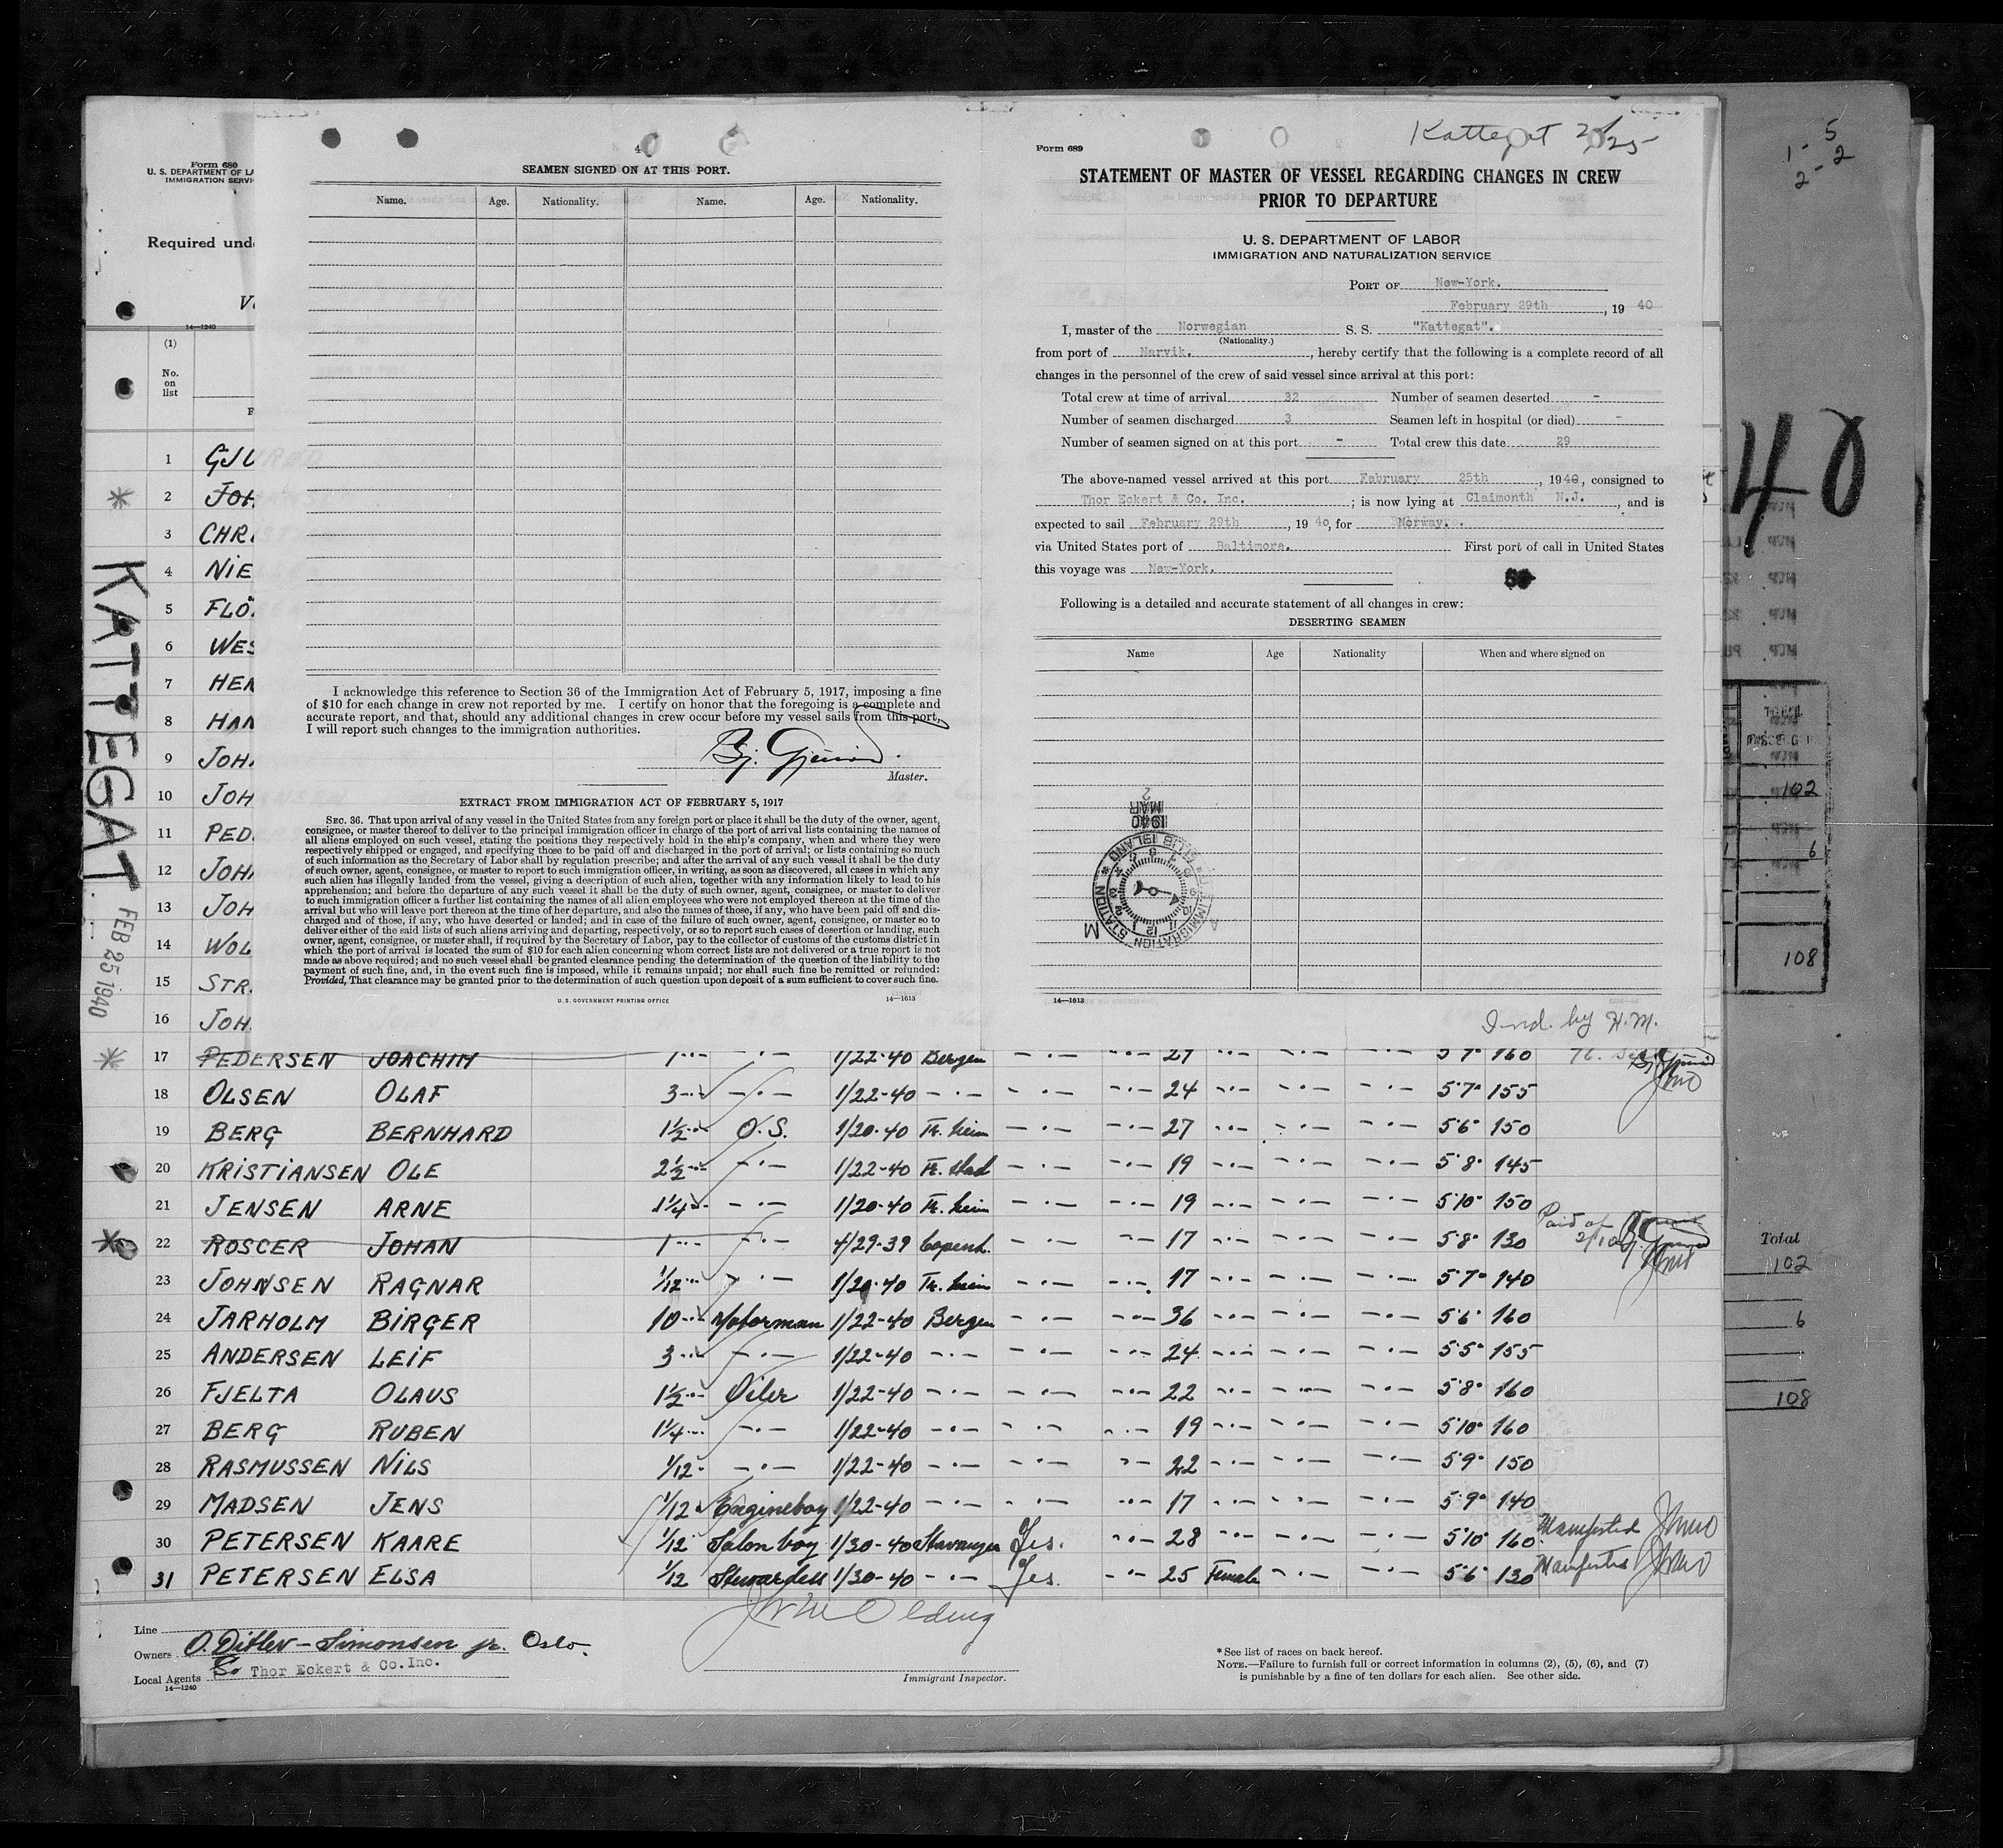 Form 680
U. S. DEPARTMENT OF LA
IMMIGRATION SERVI
Required und
V
14—1240
(1)
No.
on
list
F
1 GJU
2 JOH
3 CHRI
4 NIE
5 FLÖ
6 WES
7 HEN
8 HAN
9 JOH
10 JOH
11 PED
12 JOH
13 JOH
14 WOL
15 STR
16 JOH
KATTEGAT
FEB 25 1940
4
SEAMEN SIGNED ON AT THIS PORT.
Name. Age. Nationality. Name. Age. Nationality.
I acknowledge this reference to Section 36 of the Immigration Act of February 5, 1917, imposing a fine
of $10 for each change in crew not reported by me. I certify on honor that the foregoing is a complete and
accurate report, and that, should any additional changes in crew occur before my vessel sails from this port,
I will report such changes to the immigration authorities.
Master.
EXTRACT FROM IMMIGRATION ACT OF FEBRUARY 5, 1917
SEC. 36. That upon arrival of any vessel in the United States from any foreign port or place it shall be the duty of the owner, agent,
consignee, or master thereof to deliver to the principal immigration officer in charge of the port of arrival lists containing the names of
all aliens employed on such vessel, stating the positions they respectively hold in the ship's company, when and where they were
respectively shipped or engaged, and specifying those to be paid off and discharged in the port of arrival; or lists containing so much
of such information as the Secretary of Labor shall by regulation prescribe; and after the arrival of any such vessel it shall be the duty
of such owner, agent, consignee, or master to report to such immigration officer, in writing, as soon as discovered, all cases in which any
such alien has illegally landed from the vessel, giving a description of such alien, together with any information likely to lead to his
apprehension; and before the departure of any such vessel it shall be the duty of such owner, agent, consignee, or master to deliver
to such immigration officer a further list containing the names of all alien employees who were not employed thereon at the time of the
arrival but who will leave port thereon at the time of her departure, and also the names of those, if any, who have been paid off and dis-
charged and of those, if any, who have deserted or landed; and in case of the failure of such owner, agent, consignee, or master so to
deliver either of the said lists of such aliens arriving and departing, respectively, or so to report such cases of desertion or landing, such
owner, agent, consignee, or master, shall, if required by the Secretary of Labor, pay to the collector of customs of the customs district in
which the port of arrival is located the sum of $10 for each alien concerning whom correct lists are not delivered or a true report is not
made as above required; and no such vessel shall be granted clearance pending the determination of the question of the liability to the
payment of such fine, and, in the event such fine is imposed, while it remains unpaid; nor shall such fine be remitted or refunded:
Provided, That clearance may be granted prior to the determination of such question upon deposit of a sum sufficient to cover such fine.
U. S. GOVERNMENT PRINTING OFFICE 14—1613
Kattegat 2/25
Form 689
STATEMENT OF MASTER OF VESSEL REGARDING CHANGES IN CREW
PRIOR TO DEPARTURE
U. S. DEPARTMENT OF LABOR
IMMIGRATION AND NATURALIZATION SERVICE
PORT OF New-York.
February 29th, 19 40
I, master of the Norwegian S. S. "Kattegat".
(Nationality.)
from port of Narvik., hereby certify that the following is a complete record of all
changes in the personnel of the crew of said vessel since arrival at this port:
Total crew at time of arrival 32 Number of seamen deserted -
Number of seamen discharged 3 Seamen left in hospital (or died) -
Number of seamen signed on at this port - Total crew this date 29
The above-named vessel arrived at this port February 25th, 1940, consigned to
Thor Eckert & Co. Inc.; is now lying at Claimonth N.J., and is
expected to sail February 29th, 19 40, for Norway.
via United States port of Baltimore. First port of call in United States
this voyage was New-York.
Following is a detailed and accurate statement of all changes in crew:
DESERTING SEAMEN
Name Age Nationality When and where signed on
1940
MAR
2
U. S. IMMIGRATION STATION ELLIS ISLAND
A M
14—1613
Ind. by H.M.
17 PEDERSEN JOACHIM 1 --- - . - 1/22-40 Bergen - . - -.- 27 --- - . - - . - 5'7" 160
18 OLSEN OLAF 3 --- - . - 1/22-40 - . - - . - -.- 24 --- - . - - . - 5'7" 155
19 BERG BERNHARD 1½ O.S. 1/20-40 Tr.heim - . - -.- 27 --- - . - - . - 5'6" 150
20 KRISTIANSEN OLE 2½ - . - 1/22-40 Fr.stad - . - -.- 19 --- - . - - . - 5'8" 145
21 JENSEN ARNE 1¼ - . - 1/20-40 Tr.heim - . - -.- 19 --- - . - - . - 5'10" 150
22 ROSCER JOHAN 1 --- - . - 4/29-39 Copenh. - . - -.- 17 --- - . - - . - 5'8" 130 Paid of
23 JOHNSEN RAGNAR 1/12 - . - 1/20-40 Tr.heim - . - -.- 17 --- - . - - . - 5'7" 140
24 JARHOLM BIRGER 10 Motorman 1/22-40 Bergen - . - -.- 36 --- - . - - . - 5'6" 160
25 ANDERSEN LEIF 3 --- - . - 1/22-40 - . - - . - -.- 24 --- - . - - . - 5'5" 155
26 FJELTA OLAUS 1½ Oiler 1/22-40 - . - - . - -.- 22 --- - . - - . - 5'8" 160
27 BERG RUBEN 1¼ - . - 1/22-40 - . - - . - -.- 19 --- - . - - . - 5'10" 160
28 RASMUSSEN NILS 1/12 - . - 1/22-40 - . - - . - -.- 22 --- - . - - . - 5'9" 150
29 MADSEN JENS 1/12 Engineboy 1/22-40 - . - - . - -.- 17 --- - . - - . - 5'9" 140
30 PETERSEN KAARE 1/12 Salon boy 1/30-40 Stavanger Yes. -.- 28 --- - . - - . - 5'10" 160 Manifested
31 PETERSEN ELSA 1/12 Stewardess 1/30-40 - . - Yes. -.- 25 Female - . - - . - 5'6" 130 Manifested
Line
Owners O. Ditlev-Simonsen jr. Oslo.
Local Agents Thor Eckert & Co.Inc.
14—1240
Immigrant Inspector.
* See list of races on back hereof.
NOTE.—Failure to furnish full or correct information in columns (2), (5), (6), and (7)
is punishable by a fine of ten dollars for each alien. See other side.
1 - 5
2 - 2
40
TOTAL
102
6
108
Total
102
6
108